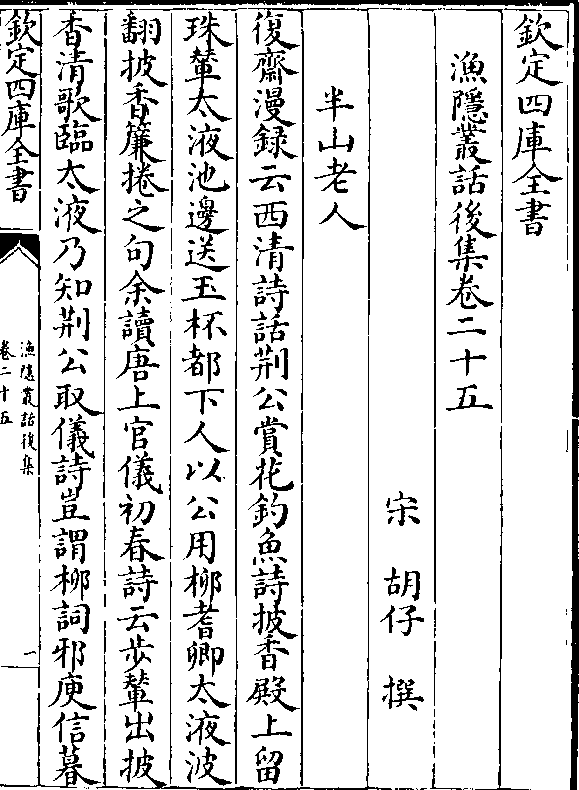 欽定四庫全書
漁隱叢話後集卷二十五
宋 胡仔 撰
半山老人
復齋漫録云西清詩話荆公賞花釣魚詩披香殿上留
珠輦太液池邊送玉杯都下人以公用柳耆卿太液波
翻披香簾捲之句余讀唐上官儀初春詩云步輦出披
香清歌臨太液乃知荆公取儀詩豈謂柳詞邪庾信暮
欽定四庫全書
漁隱叢話後集
卷二十五
一